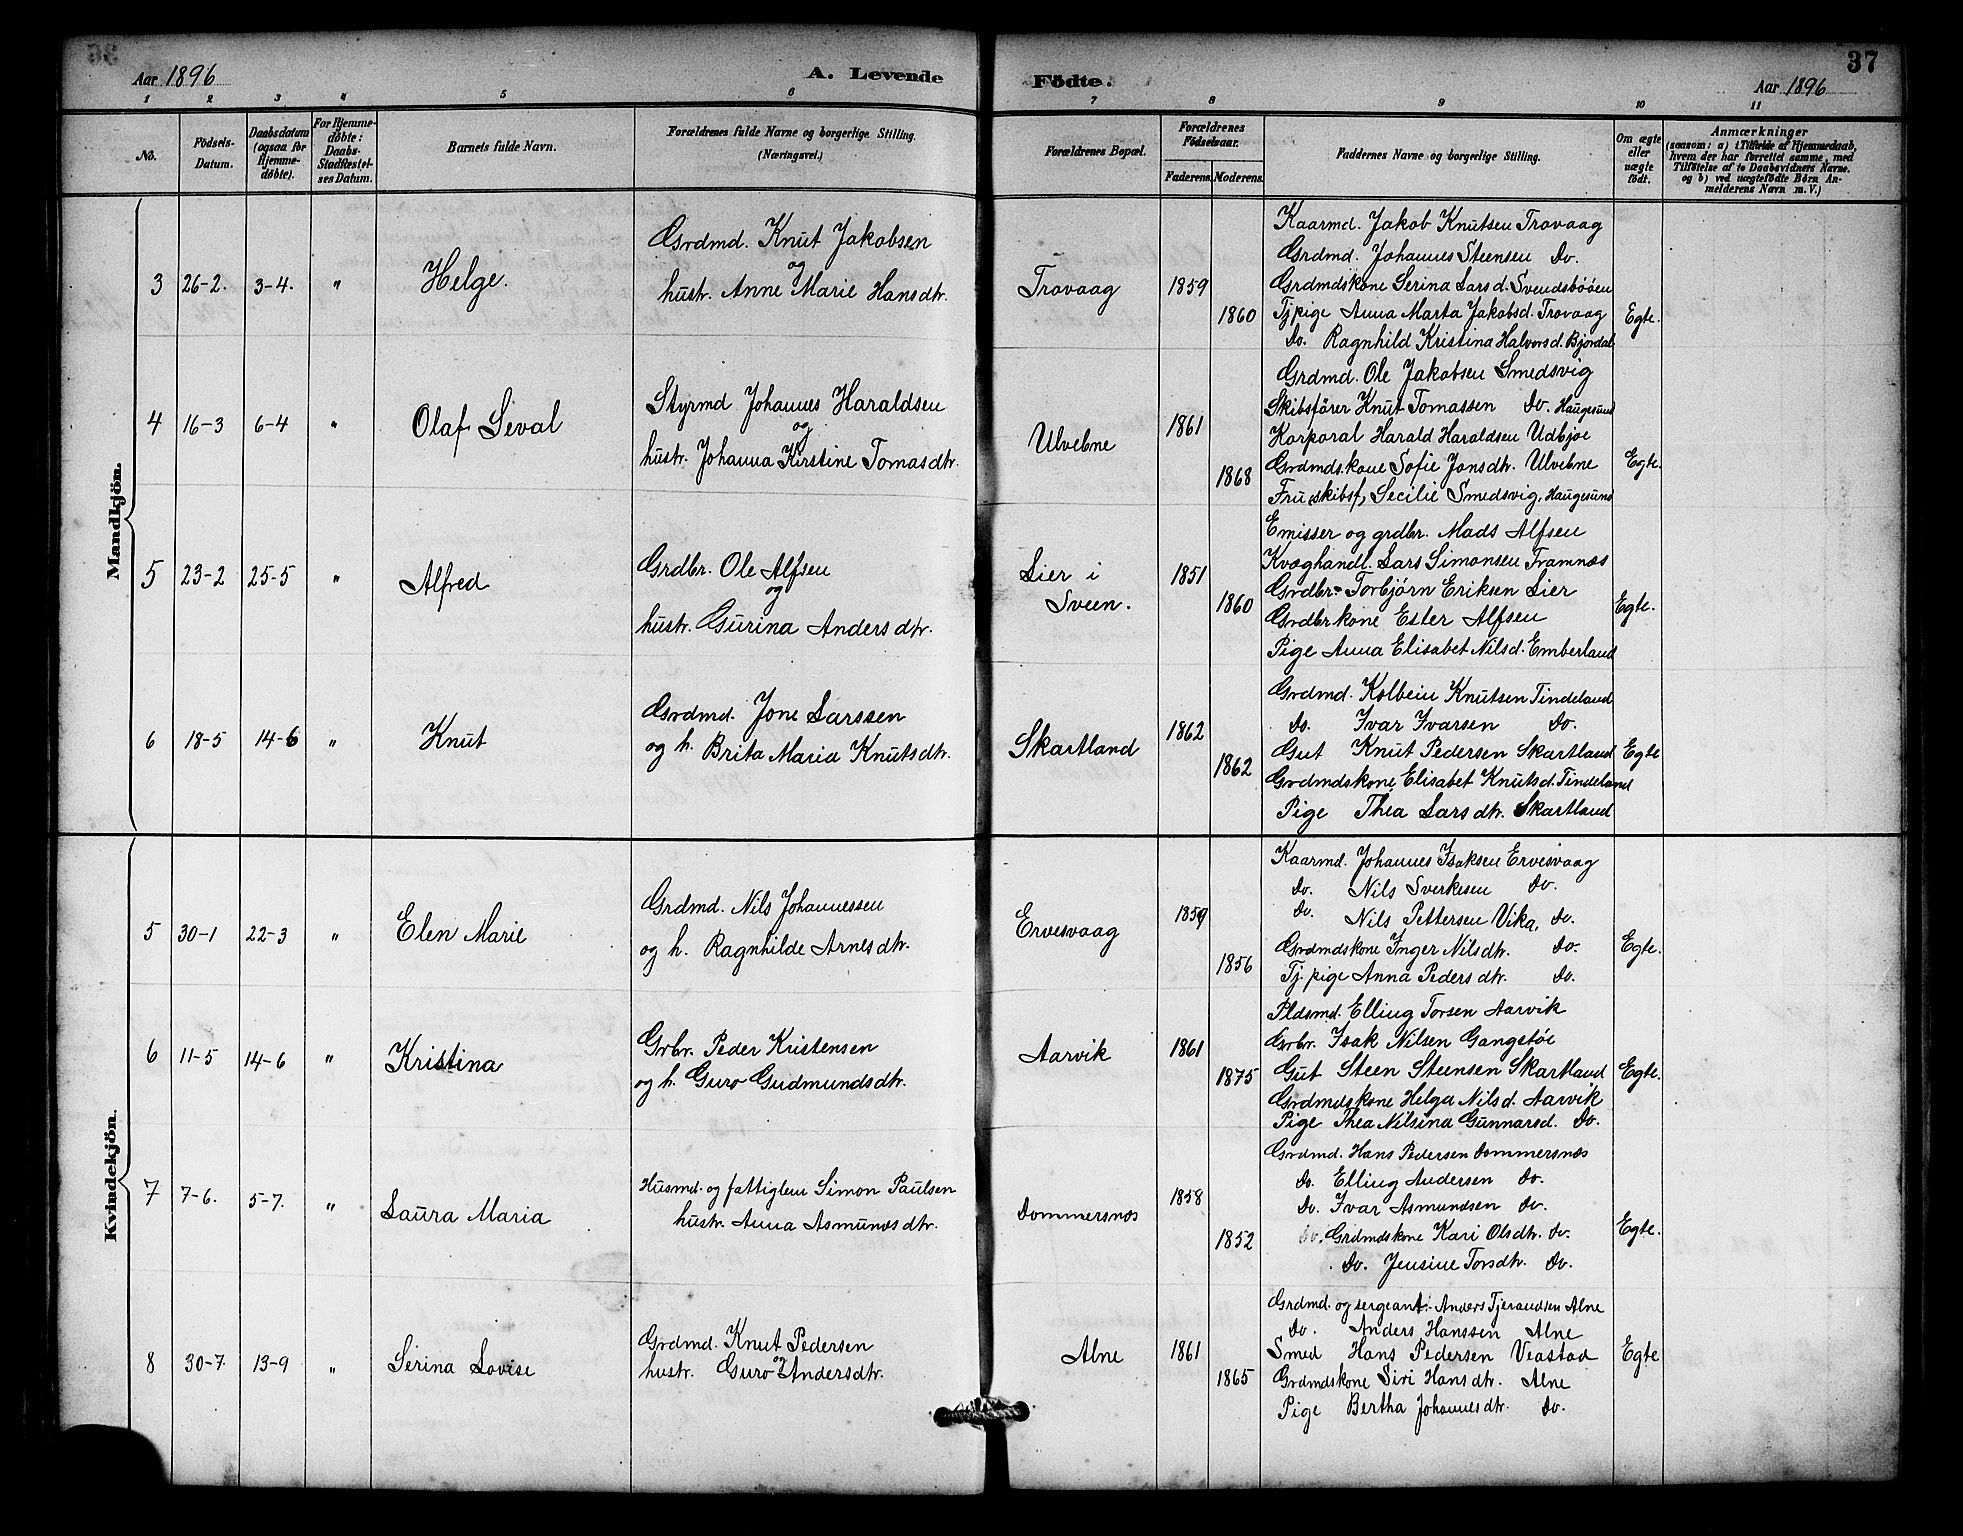 Aar 1896
A. Levende
Födte.
37
Aar 1896
1 2 3 4 5 6 7 8 9 10 11
No.
Födsels-Datum.
Daabsdatum (ogsaa for Hjemme-döbte).
For Hjemme-döbte: Daabs-Stadfæstel-ses Datum.
Barnets fulde Navn.
Forældrenes fulde Navne og borgerlige Stilling.
(Næringsvei.)
Forældrenes Bopæl.
Forældrenes Födselsaar.
Faderens. Moderens.
Faddernes Navne og borgerlige Stilling.
Om ægte eller uægte födt.
Anmærkninger
(saasom: a) i Tilfælde af Hjemmedaab, hvem der har forrettet samme, med Tilföielse af to Daabsvidners Navne. og b) ved uægtefödte Börn An-melderens Navn m. V.)
Mandkjön.
3 26-2. 3-4. " Helge.
Grdmd. Knut Jakobsen
og
hustr. Anne Marie Hansdtr.
Trovaag 1859
1860
Kaarmd. Jakob Knutsen Trovaag
Grdmd. Johannes Steensen Do.
Grdmdskone Serina Larsd. Svendsböen
Tjpige Anna Marta Jakobsd. Trovaag
Do. Ragnhild Kristina Halvorsd. Bjordal
Egte.
4 16-3 6-4 " Olaf Seval
Styrmd Johannes Haraldsen
og
hustr. Johanna Kirstine Tomasdtr.
Ulvebne 1861
1868
Grdmd. Ole Jakobsen Smedsvig
Skibsförer Knut Tomassen Do. Haugesund
Korporal Harald Haraldsen Udbjoe
Grdmdskone Sofie Jonsdtr. Ulvebne
Fru skibsf, Secilie Smedsvig, Haugesund
Egte.
5 23-2 25-5 " Alfred
Grdbr. Ole Alfsen
og
hustr. Gurina Andersdtr.
Lier i
Sveen.
1851
1860
Emissær og grdbr. Mads Alfsen
Kvæghandl. Lars Simonsen Framnæs
Grdbr. Torbjørn Eriksen Lier
Grdbrkone Ester Alfsen
Pige Anna Elisabet Nilsd. Emberland
Egte.
6 18-5 14-6 " Knut
Grdmd. Jone Larssen
og h. Brita Maria Knutsdtr.
Skartland 1862
1862
Grdmd. Kolbein Knutsen Tindeland
Do. Ivar Ivarsen Do.
Gut Knut Pedersen Skartland
Grdmdskone Elisabet Knutsd. Tindeland
Pige Thea Larsdtr. Skartland
Egte
Kvindekjön.
5 30-1 22-3 " Elen Marie
Grdmd. Nils Johannessen
og h. Ragnhilde Arnesdtr.
Ervesvaag 1859
1856
Kaarmd. Johannes Isaksen Ervesvaag
Do. Nils Sverkesen Do.
Do. Nils Pettersen Vika, Do.
Grdmdskone Inger Nilsdtr. Do.
Tj. pige Anna Pedersdtr. Do.
Egte.
6 11-5 14-6 " Kristina
Grbr. Peder Kristensen
og h. Guro Gudmundsdtr.
Aarvik 1861
1875
Pldsmd. Elling Torsen Aarvik
Grbr. Isak Nilsen Gangstöe
Gut Steen Steensen Skartland
Grdmdskone Helga Nilsd. Aarvik
Pige Thea Nilsina Gunnarsd. Do.
Egte.
7 7-6. 5-7. " Laura Maria
Husmd. og fattiglem Simon Paulsen
hustr. Anna Asmundsdtr.
Dommersnæs 1858
1852
Grdmd. Hans Pedersen Dommersnæs
Do. Elling Andersen Do.
Do. Ivar Asmundsen Do.
Do. Grdmdskone Kari Olsdtr. Do.
Do. Jensine Torsdtr. Do.
Egte.
8 30-7. 13-9 " Serina Lovise
Grdmd. Knut Pedersen
og
hustr. Guro Andersdtr.
Alne 1861
1865
Grdmd. og sergeant. Anders Tjerandsen Alne
Do. Anders Hanssen Alne
Smed Hans Pedersen Veastad
Grdmdskone Siri Hansdtr. Alne
Pige Bertha Johannesdtr. Do.
Egte